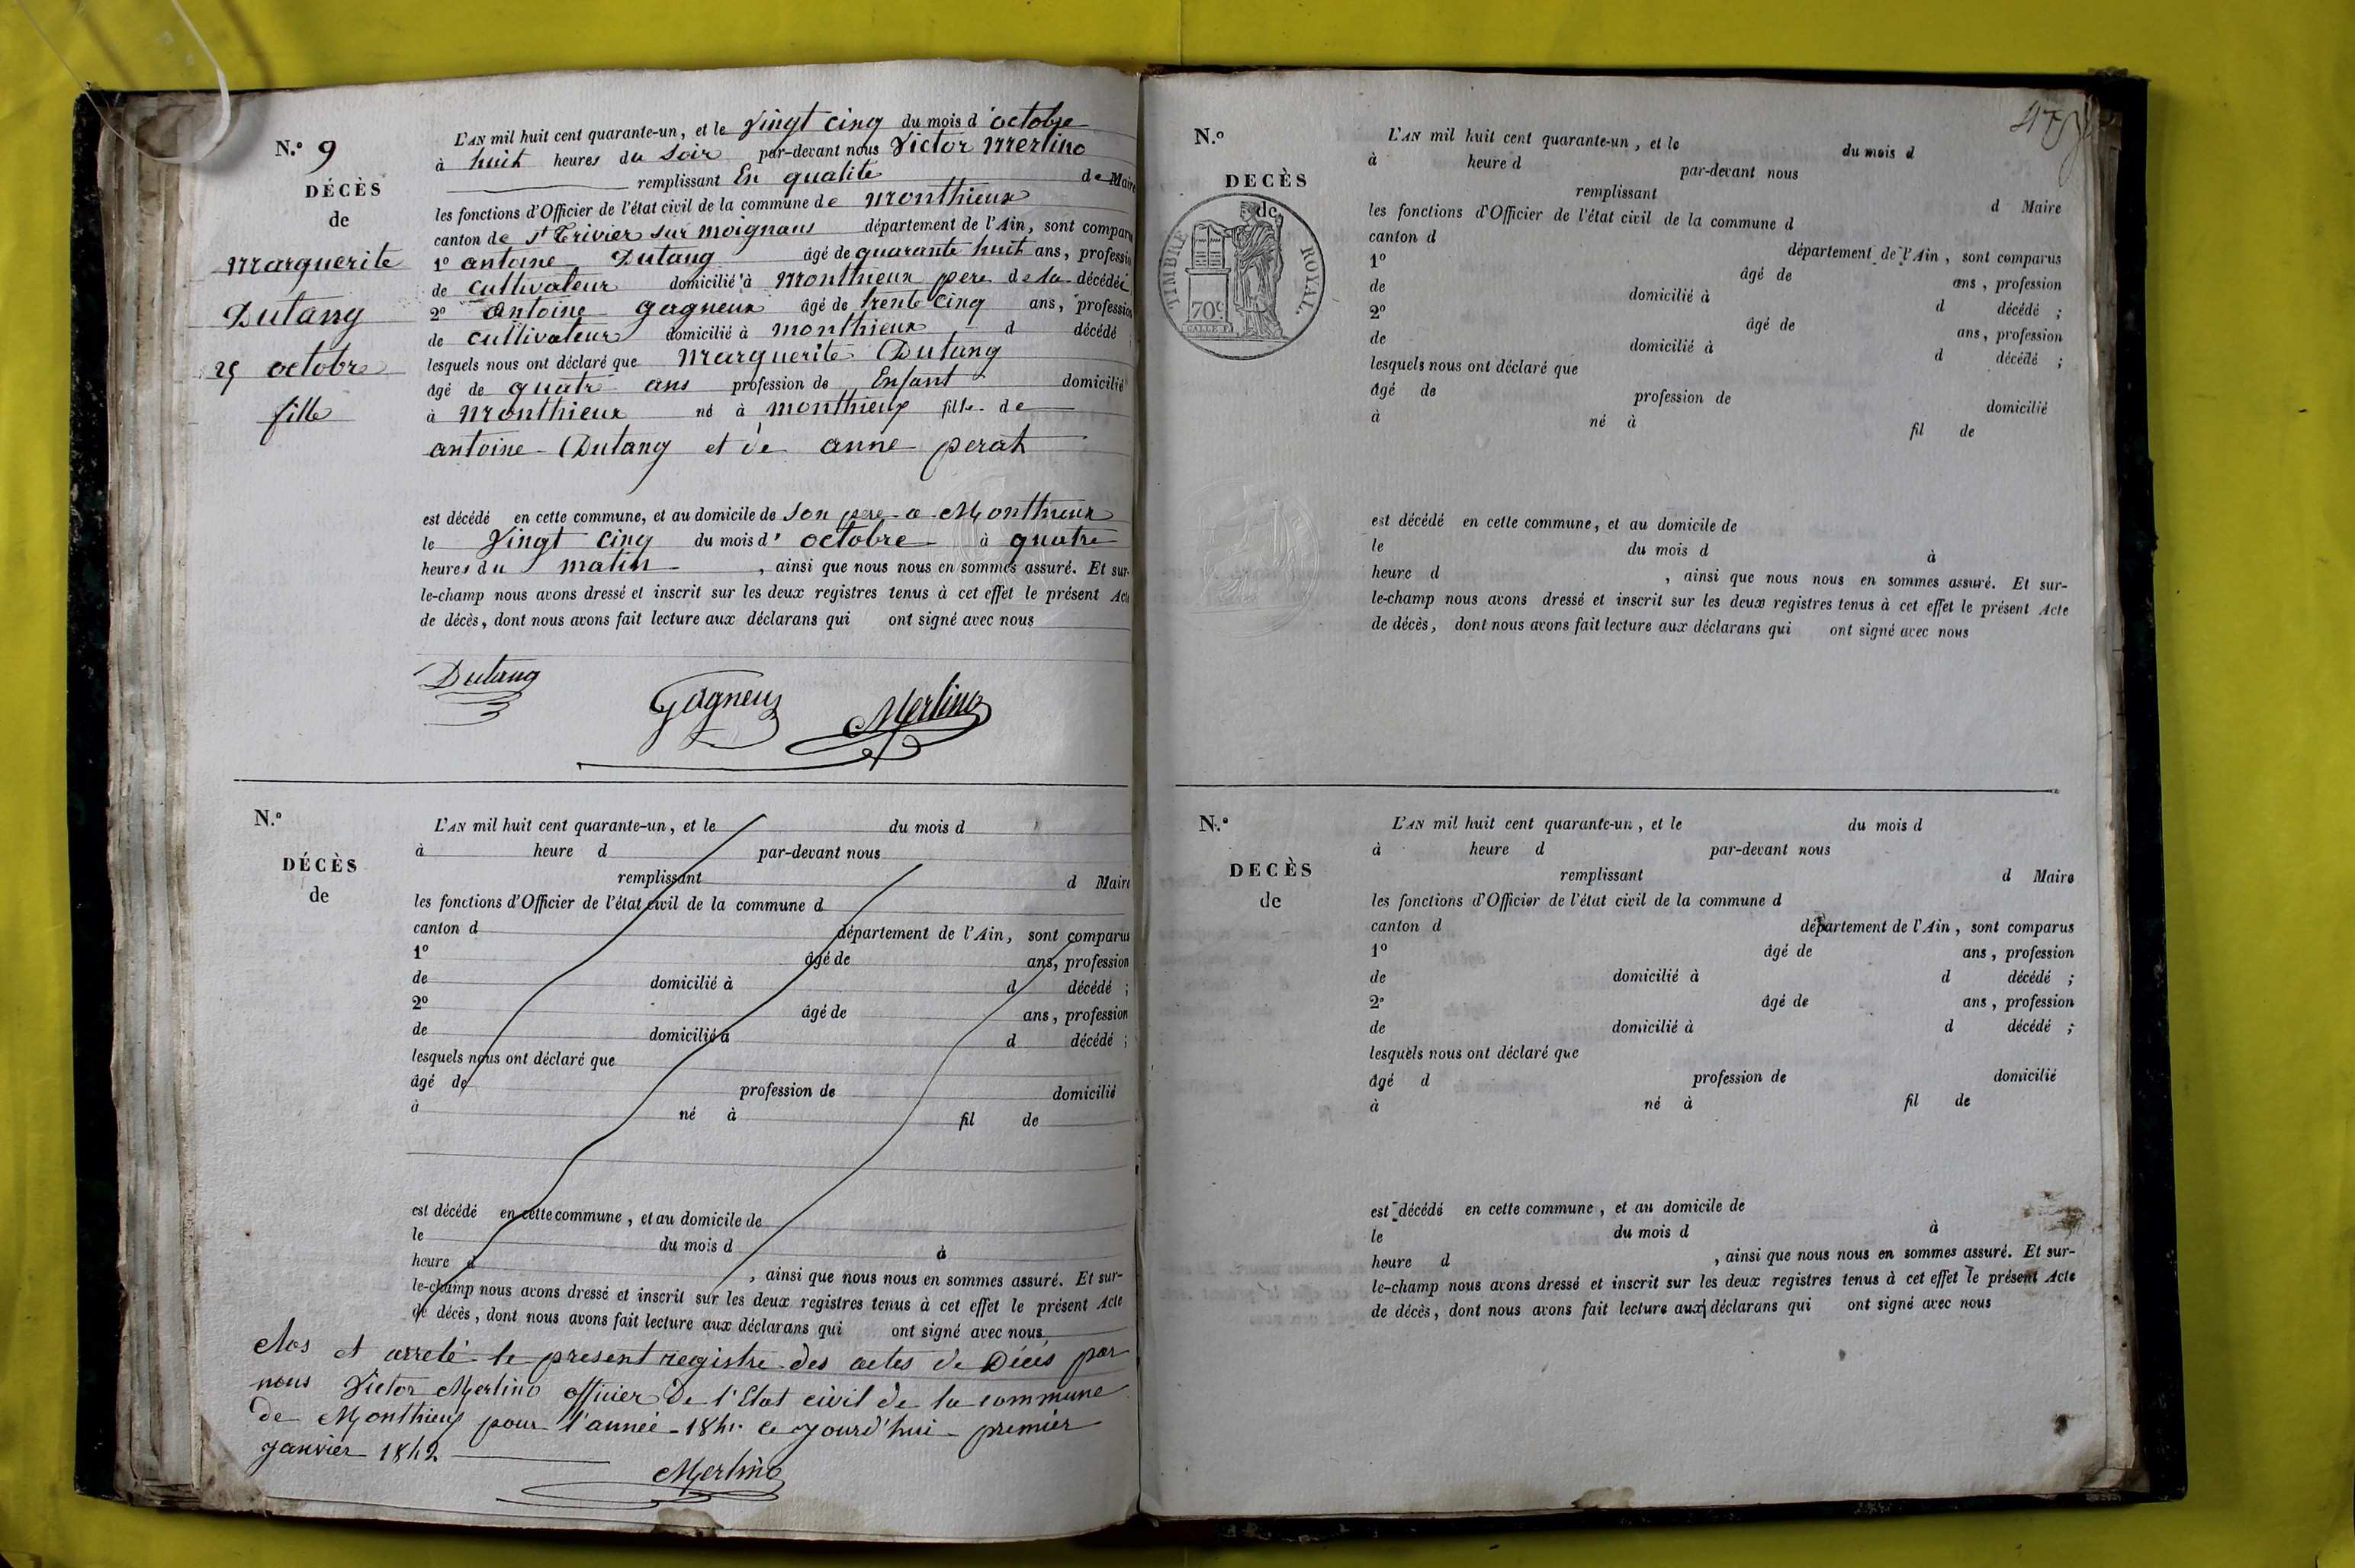 N.° 9
DÉCÈS
de
Marguerite
Dutang
25 octobre
fille
L'AN mil huit cent quarante-un, et le Vingt cinq du mois d'octobre
à huit heures du Soir par-devant nous Victor Merlino
remplissant En qualité de Maire
les fonctions d'Officier de l'état civil de la commune de Monthieux
canton de St Trivier sur moignans département de l'Ain, sont comparus
1° antoine Dutang âgé de quarante huit ans, profession
de cultivateur domicilié à Monthieux pere de la décédéé
2° Antoine gagneux âgé de trente Cinq ans, profession
de cultivateur domicilié à monthieux d décédé ;
lesquels nous ont déclaré que Marguerite Dutang
âgé de quatre ans profession de Enfant domicilié
à Monthieux né à Monthieux fille de
antoine Dutang et de anne perat
est décédé en cette commune, et au domicile de Son pere a Monthieux
le Vingt Cinq du mois d'octobre à quatre
heures du matin , ainsi que nous nous en sommes assuré. Et sur-
le-champ nous avons dressé et inscrit sur les deux registres tenus à cet effet le présent Acte
de décès, dont nous avons fait lecture aux déclarans qui ont signé avec nous
Dutang
Gagneux Merlino
N.°
DÉCÈS
de
L'AN mil huit cent quarante-un, et le du mois d
à heure d par-devant nous
remplissant d Maire
les fonctions d'Officier de l'état civil de la commune d
canton d département de l'Ain, sont comparus
1° âgé de ans, profession
de domicilié à d décédé ;
2° âgé de ans, profession
de domicilié à d décédé ;
lesquels nous ont déclaré que
âgé de profession de domicilié
à né à fil de
est décédé en cette commune, et au domicile de
le du mois d à
heure d , ainsi que nous nous en sommes assuré. Et sur-
le-champ nous avons dressé et inscrit sur les deux registres tenus à cet effet le présent Acte
de décès, dont nous avons fait lecture aux déclarans qui ont signé avec nous,
Clos et arreté le present registre des actes de Décès par
nous Victor Merlino officier de l'Etat civil de la commune
de Monthieux pour l'année 1841 ce jourd'hui premier
janvier 1842
Merlino
N.°
DECÈS
de
TIMBRE ROYAL
70c.
L'AN mil huit cent quarante-un, et le du mois d
à heure d par-devant nous
remplissant d Maire
les fonctions d'Officier de l'état civil de la commune d
canton d département de l'Ain, sont comparus
1° âgé de ans, profession
de domicilié à d décédé ;
2° âgé de ans, profession
de domicilié à d décédé ;
lesquels nous ont déclaré que
âgé de profession de domicilié
à né à fil de
est décédé en cette commune, et au domicile de
le du mois d à
heure d , ainsi que nous nous en sommes assuré. Et sur-
le-champ nous avons dressé et inscrit sur les deux registres tenus à cet effet le présent Acte
de décès, dont nous avons fait lecture aux déclarans qui ont signé avec nous
N.°
DECÈS
de
L'AN mil huit cent quarante-un, et le du mois d
à heure d par-devant nous
remplissant d Maire
les fonctions d'Officier de l'état civil de la commune d
canton d département de l'Ain, sont comparus
1° âgé de ans, profession
de domicilié à d décédé ;
2° âgé de ans, profession
de domicilié à d décédé ;
lesquels nous ont déclaré que
âgé d profession de domicilié
à né à fil de
est décédé en cette commune, et au domicile de
le du mois d à
heure d , ainsi que nous nous en sommes assuré. Et sur-
le-champ nous avons dressé et inscrit sur les deux registres tenus à cet effet le présent Acte
de décès, dont nous avons fait lecture aux déclarans qui ont signé avec nous